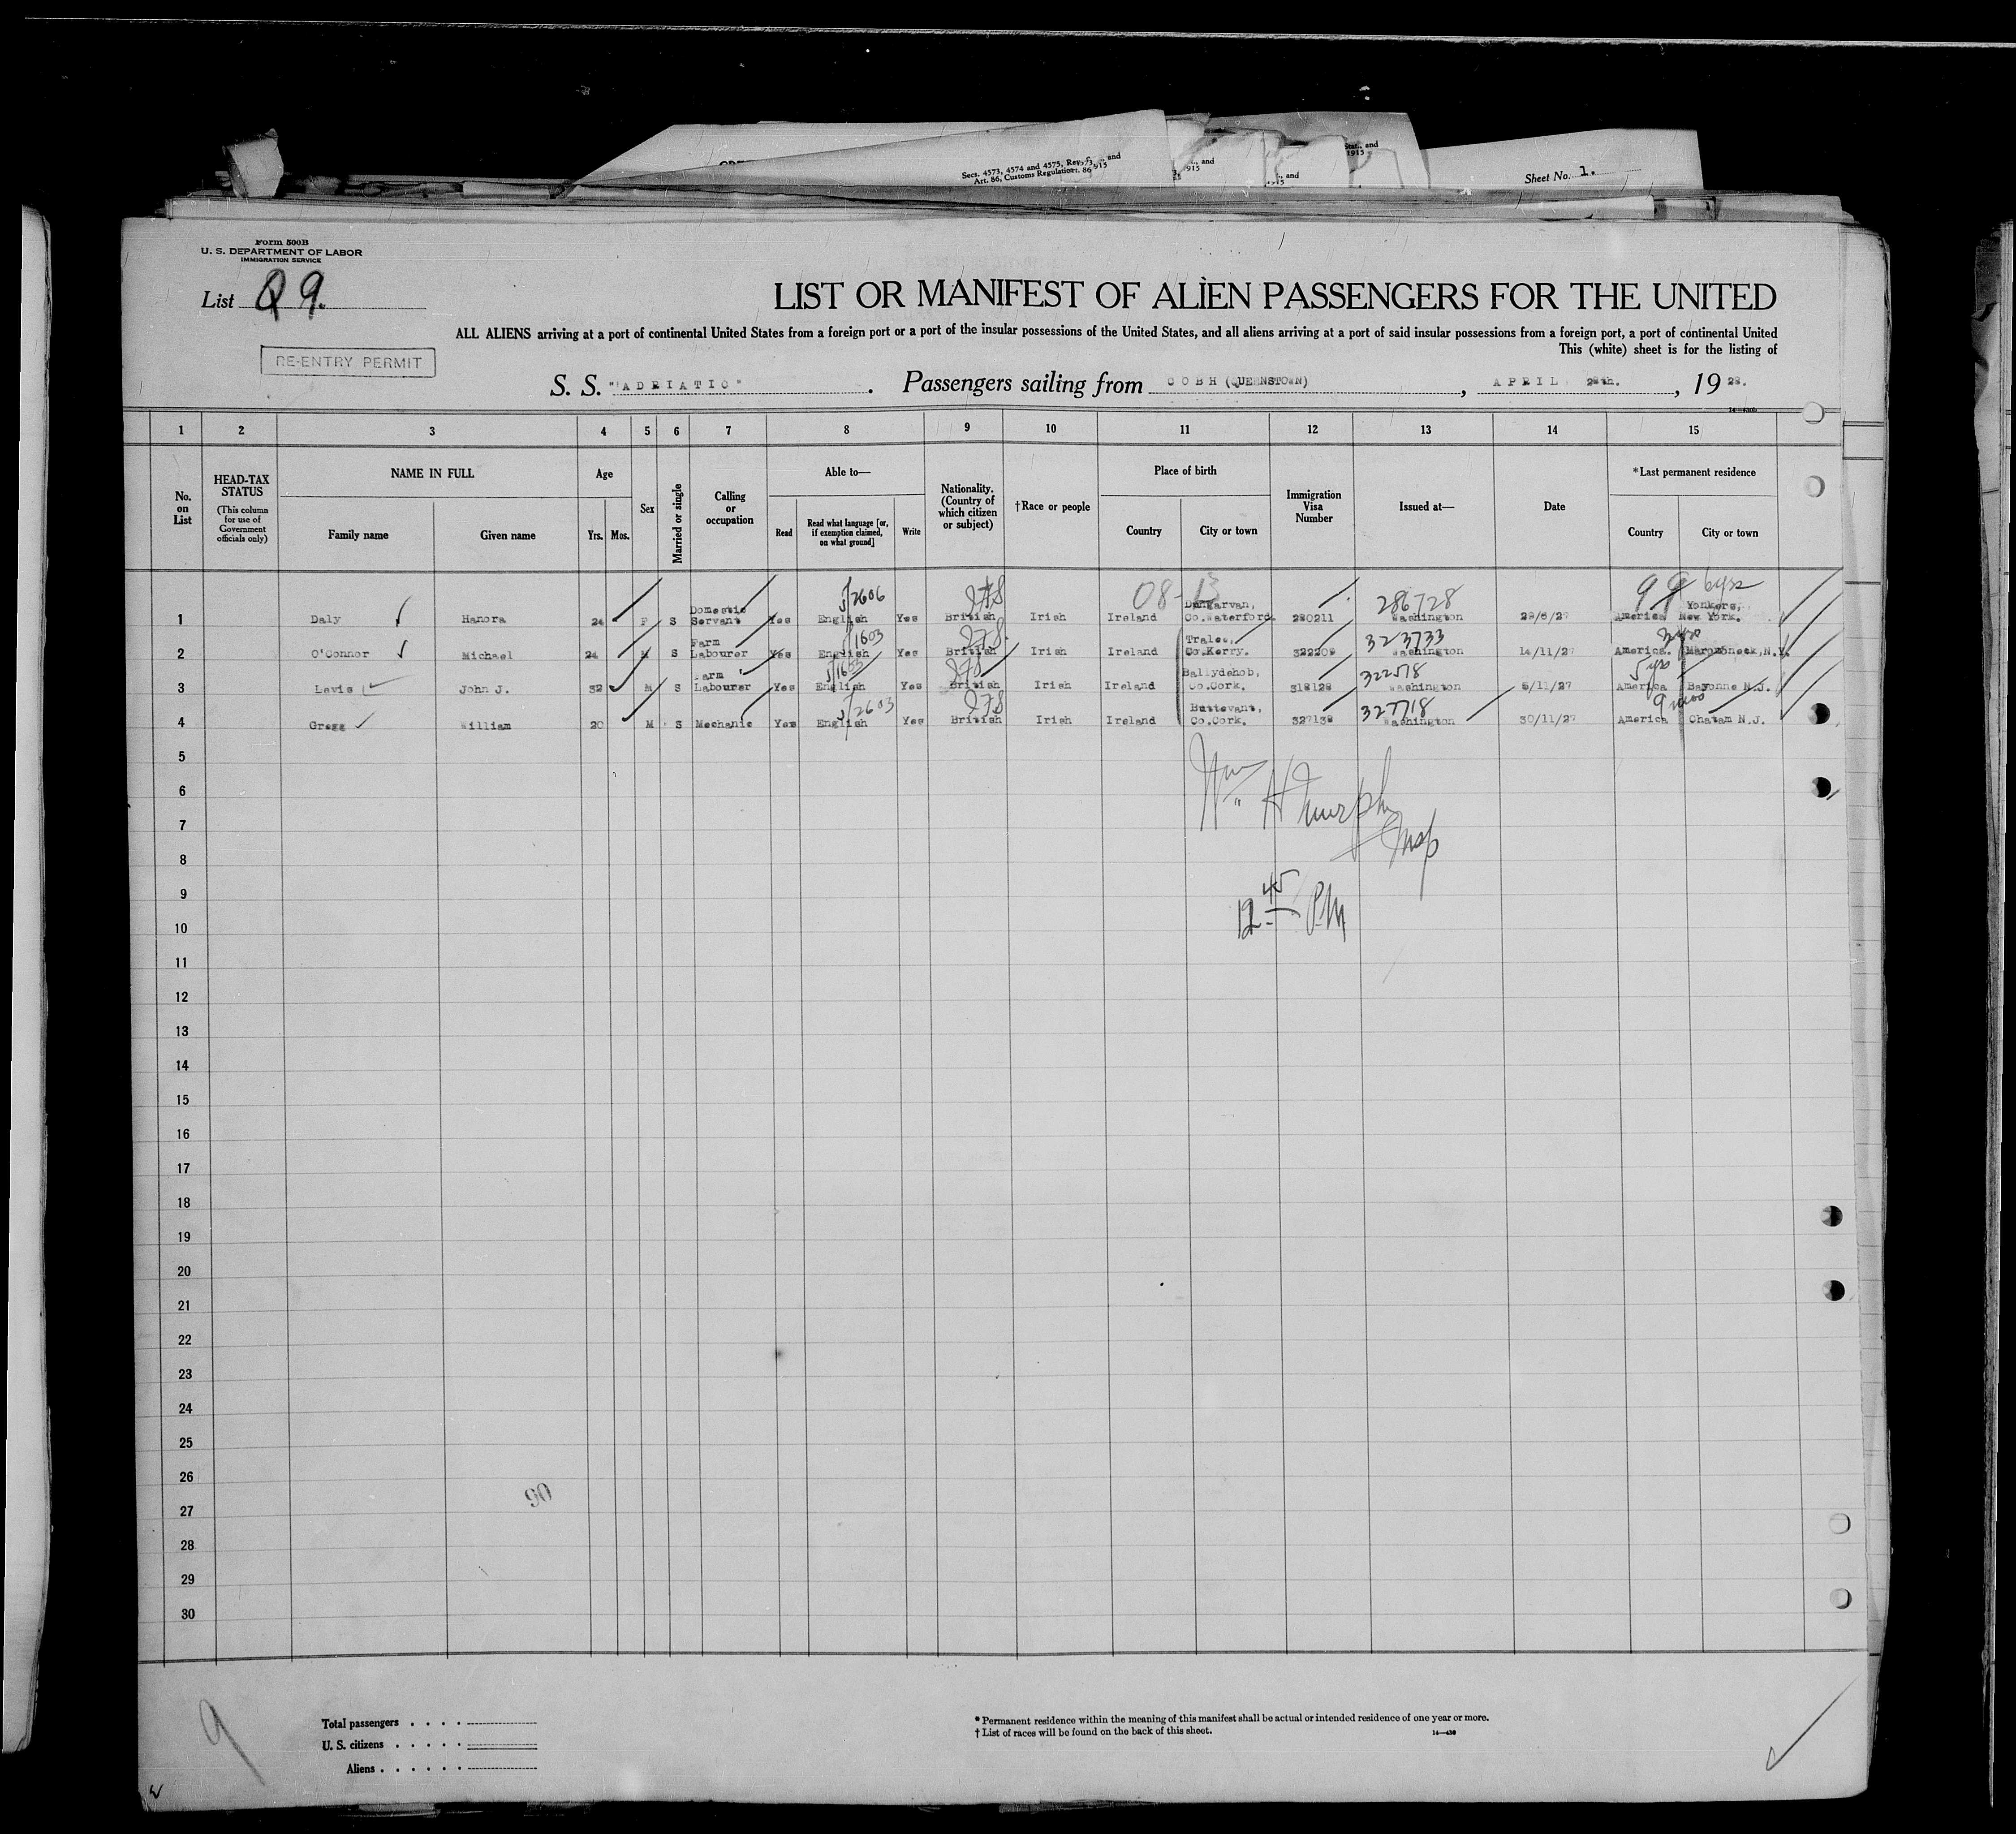 Sects. 4573, 4574 and 4575, Rev.
Art. 86, Customs Regulations
Sheet No. 1.
Form 500B
U. S. DEPARTMENT OF LABOR
IMMIGRATION SERVICE
List Q 9.
LIST OR MANIFEST OF ALIEN PASSENGERS FOR THE UNITED
ALL ALIENS arriving at a port of continental United States from a foreign port or a port of the insular possessions of the United States, and all aliens arriving at a port of said insular possessions from a foreign port, a port of continental United
This (white) sheet is for the listing of
RE-ENTRY PERMIT
S. S. "ADRIATIC". Passengers sailing from COBH (QUEENSTOWN), APRIL 28th., 1928.
1 2 3 4 5 6 7 8 9 10 11 12 13 14 15
No. on List
HEAD-TAX STATUS
(This column for use of Government officials only)
NAME IN FULL
Family name Given name
Age
Yrs. Mos.
Sex
Married or single
Calling or occupation
Able to—
Read
Read what language [or, if exemption claimed, on what ground]
Write
Nationality. (Country of which citizen or subject)
†Race or people
Place of birth
Country City or town
Immigration Visa Number
Issued at—
Date
*Last permanent residence
Country City or town
5/2606 278 08-13 286728 99 6yrs
1 Daly Hanora 24 F S Domestic Servant Yes English Yes British Irish Ireland Dungarvan, Co.Waterford. 280211 Washington 29/6/27 America Yonkers, New York.
1603 278 323733
2 O'Connor Michael 24 M S Farm Labourer Yes English Yes British Irish Ireland Tralee, Co.Kerry. 322209 Washington 14/11/27 America. Maroroneck, N.Y.
5/1603 278 322518 5yrs
3 Levis John J. 32 M S Farm Labourer Yes English Yes British Irish Ireland Ballydehob, Co.Cork. 318128 Washington 5/11/27 America Bayonne N.J.
5/2603 278 327718 9 mos
4 Gregg William 20 M S Mechanic Yes English Yes British Irish Ireland Buttevant, Co.Cork. 327138 Washington 30/11/27 America Chatam N.J.
5
6
Wm H Murphy
7
Insp
8
9
12 45 PM
10
11
12
13
14
15
16
17
18
19
20
21
22
23
24
25
26
90
27
28
29
30
9
Total passengers . . . .
U. S. citizens . . . . .
Aliens . . . . . .
* Permanent residence within the meaning of this manifest shall be actual or intended residence of one year or more.
† List of races will be found on the back of this sheet.
14—430